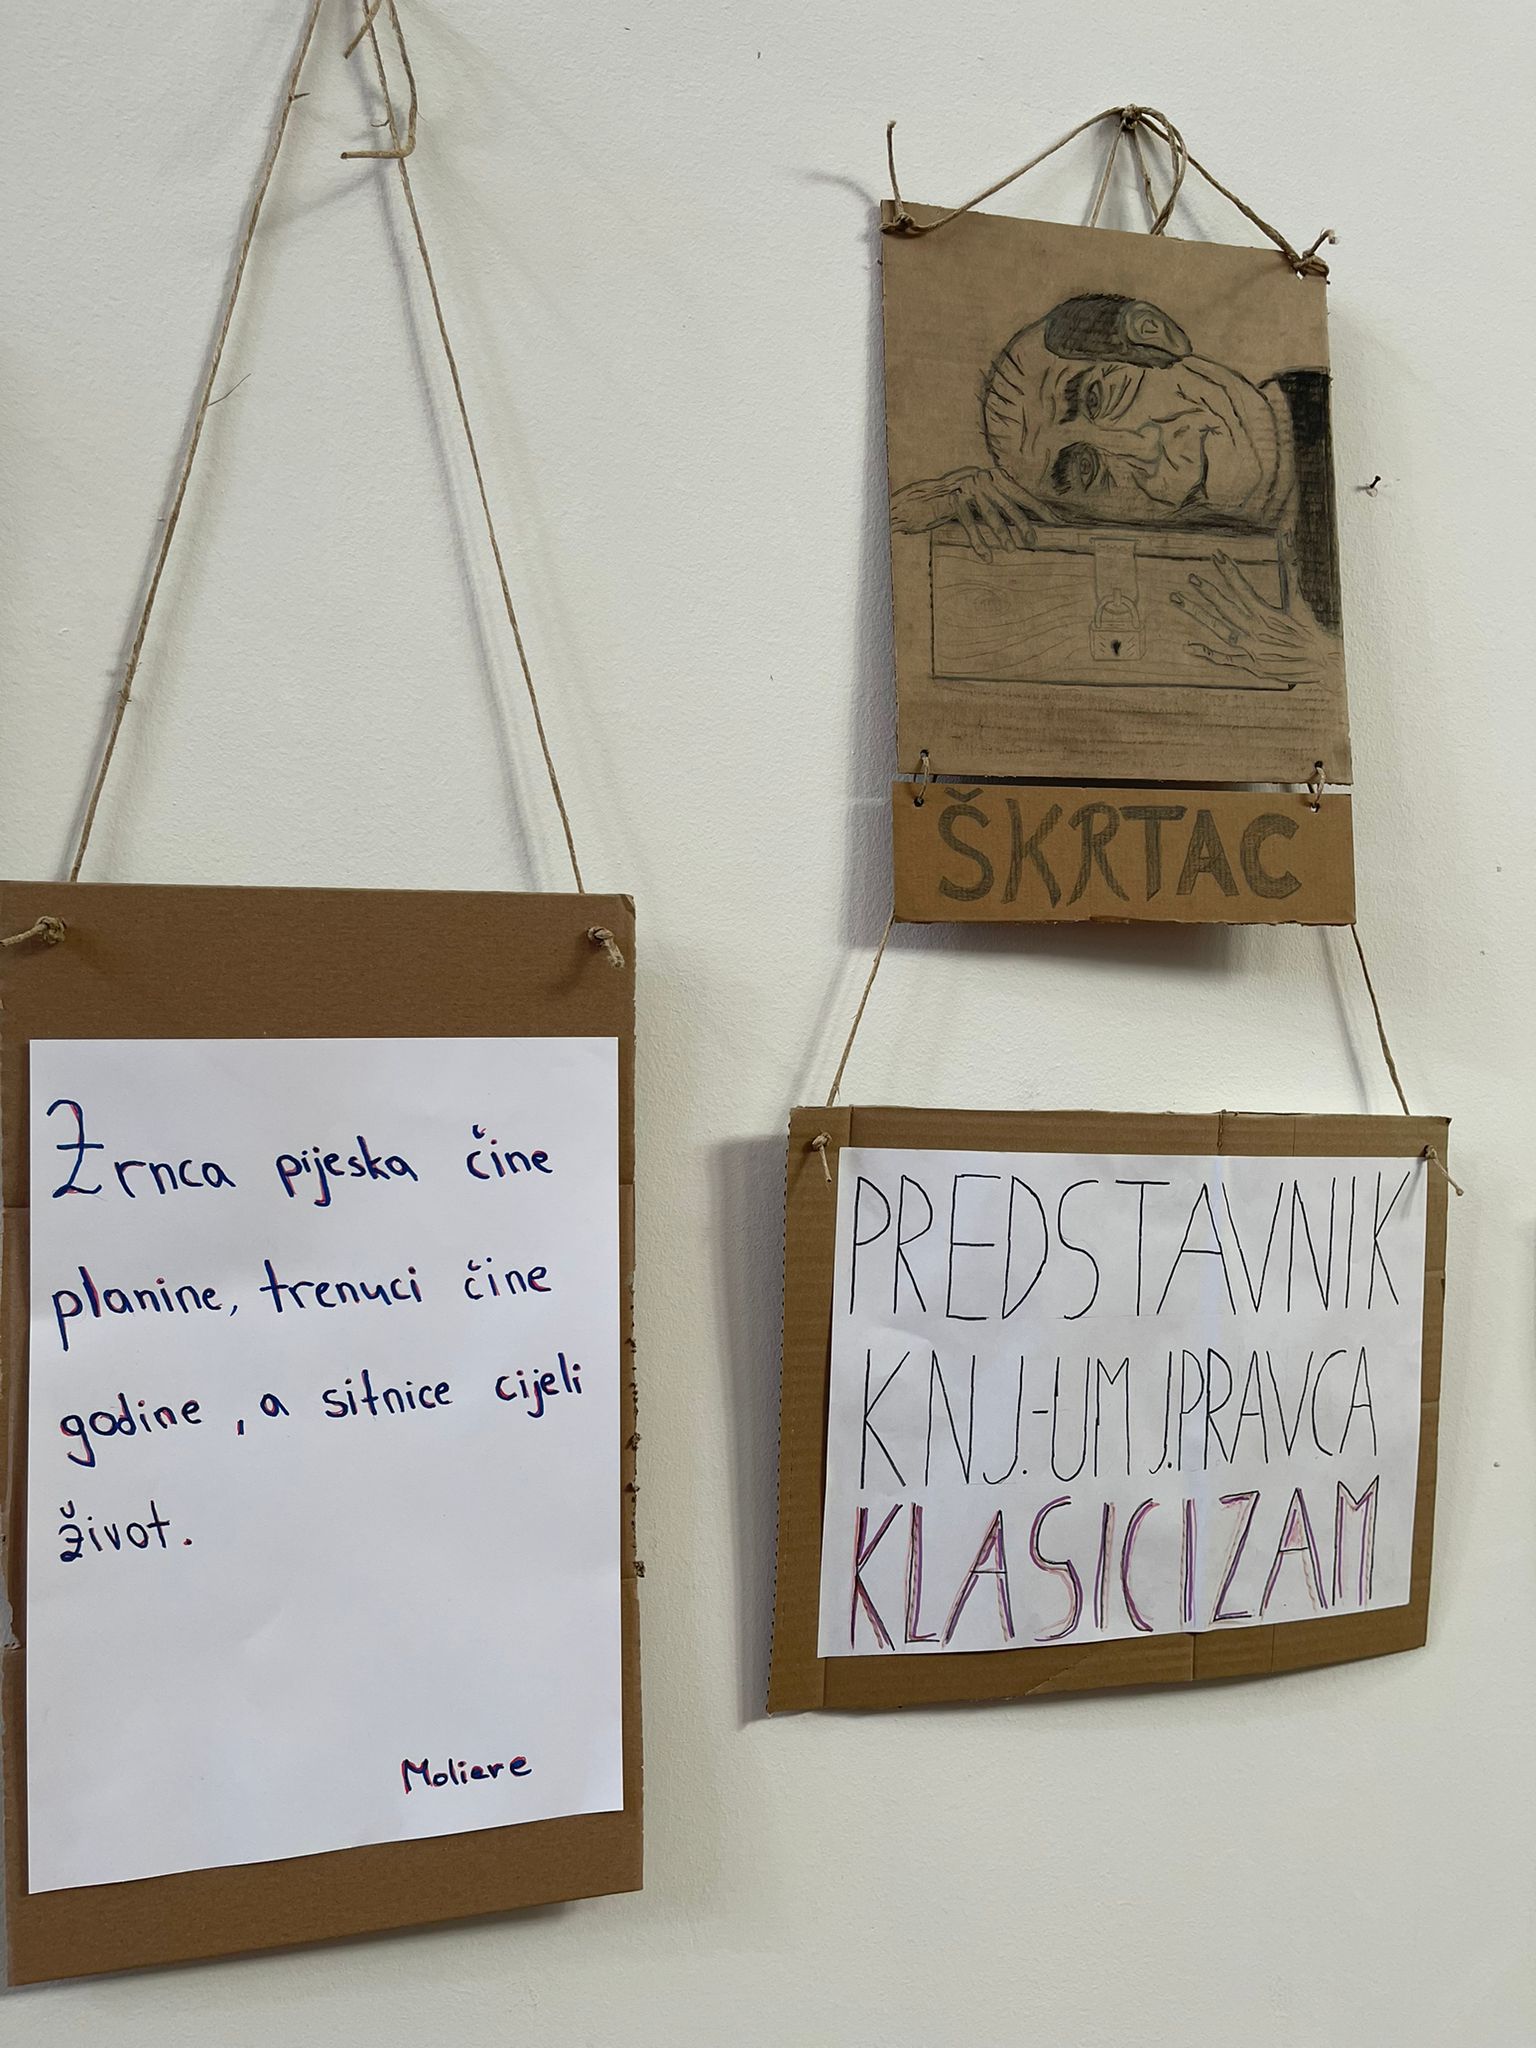 Zrnca pijeska čine
planine, trenuci čine
godine, a sitnice cijeli
život.
Moliere
ŠKRTAC
PREDSTAVNIK
KNJ.-UMJ.PRAVCA
KLASICIZAM